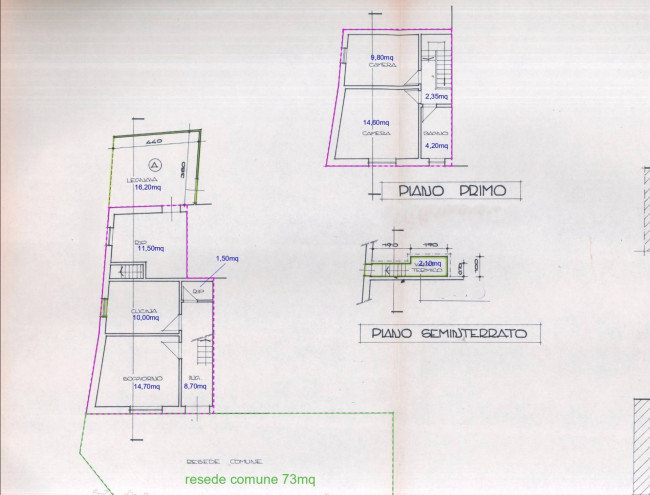 9,80mq
CAMERA
2,35mq
14,60mq
CAMERA
BAGNO
4,20mq
PIANO PRIMO
440
380
A
LEGNAIA
16,20mq
RIP
11,50mq
1,50mq
RIP
CUCINA
10,00mq
SOGGIORNO
14,70mq
ING
8,70mq
190
190
2,10mq
TERMICO
PIANO SEMINTERRATO
RESEDE COMUNE
resede comune 73mq